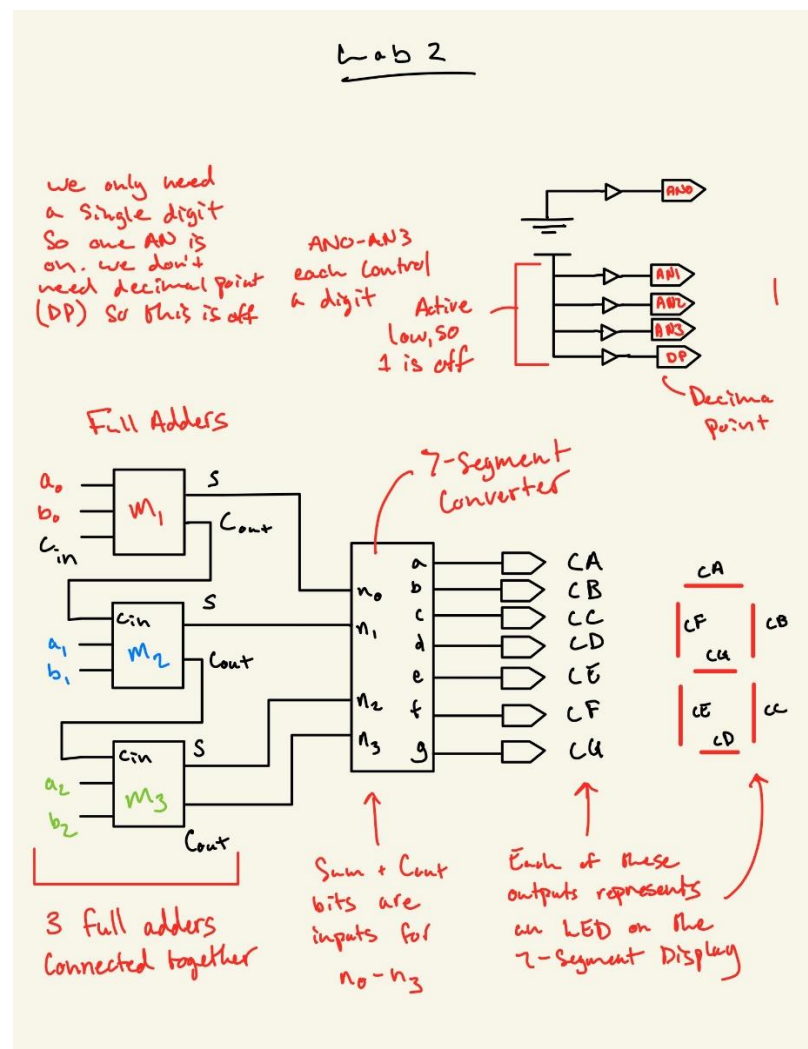 Lab 2
we only need
a single digit
So one AN is
on. we don't
need decimal point
(DP) So this is off
AN0-AN3
each control
a digit
Active
low, so
1 is off
AN0
AN1
AN2
AN3
DP
Decima
point
Full Adders
7-Segment
Converter
a₀
b₀
Cin
m₁
S
Cout
Cin
a₁
b₁
m₂
S
Cout
Cin
a₂
b₂
m₃
S
Cout
n₀
n₁
n₂
n₃
a
b
c
d
e
f
g
CA
CB
CC
CD
CE
CF
CG
CA
CF
CB
CG
CE
CC
CD
3 full adders
Connected together
Sum + Cout
bits are
inputs for
n₀-n₃
Each of these
outputs represents
an LED on the
7-Segment Display